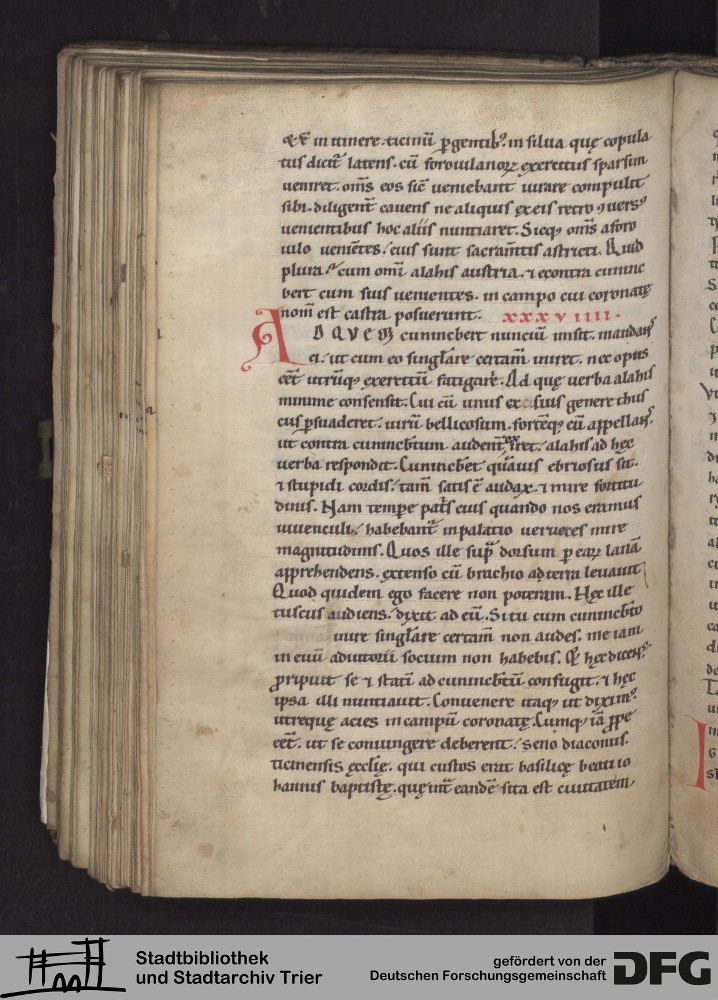 &ē in itinere ticinū ꝑgentibꝰ. in silua quę copula
tus dicit᷑ latens. cū foroiulanoꝝ exercitus sparsim
ueniret. om̄s eos sic̄ ueniebant iurare compulit
sibi. diligent᷑ cauens ne aliquis ex eis retro ꝯuersꝰ
uenientibus hoc aliis nuntiaret. Sicqꝫ om̄s a foro
iulo uenientes. eius sunt sacram̄tis astricti. Quid
plura. cum omi alahis austria. ⁊ econtra cuninc
bert cum suis uenientes. in campo cui coronatę
nom̄ est castra posuerunt. xxxviiii.
AD QVEM cunincbert nunciū misit. mandansꝰ
ei. ut cum eo singlare certam̄ iniret. nec opus
eēt utrūqꝫ exercitū fatigare. Ad quę uerba alahis
minime consensit. Cui cū unus ex suis genere thus
cus ꝑsuaderet. uirū bellicosum. fortēqꝫ eū appellansꝰ.
ut contra cunincb̄tum audent᷑ exiret. alahis ad hęc
uerba respondet. Cunincb̄et quāuis ebriosus sit.
⁊ stupidi cordis. tam̄ satis ē audax. ⁊ mire fortitu
dinis. Nam tempe pat͛s eius quando nos eramus
iuuenculi. habebant᷑ in palatio uerueces mire
magnitudinis. Quos ille sup̄ dorsum ꝑ eaꝝ lanā
apprehendens. extenso eū brachio ad terra leuauit
Quod quidem ego facere non poteram. Hęc ille
tuscus audiens. dixit ad eū. Si tu cum cunincb̄to
inire singlare certam̄ non audes. me iam
in euū adiutoriū socium non habebis. Et hęc dicensꝰ.
ꝓripuit se ⁊ statī ad cunincb̄tū confugit. ⁊ hęc
ipsa illi nuntiauit. Conuenere itaqꝫ ut diximꝰ.
utreque acies in campū coronatę. Cumqꝫ iā ꝓpe
eēt. ut se coniungere deberent. seno diaconus.
ticinensis ęccl̄ię. qui custos erat basilicę beati io
hannis baptistę. quę int᷑ eandē sita est ciuitatem
Stadtbibliothek
und Stadtarchiv Trier
gefördert von der
Deutschen Forschungsgemeinschaft
DFG